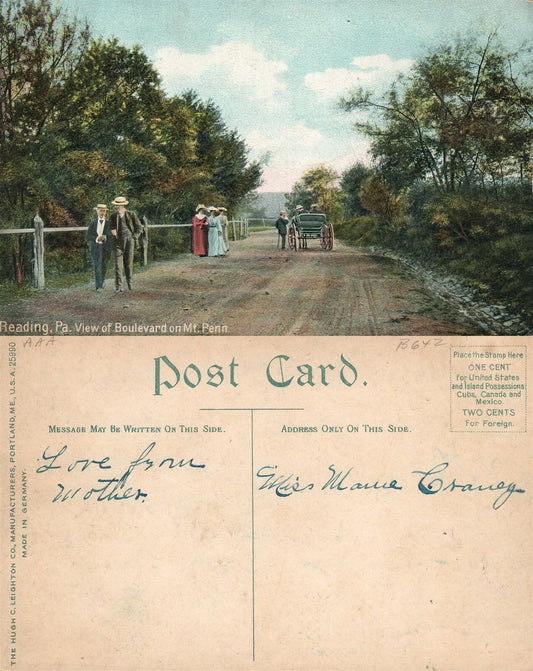 Reading, Pa. View of Boulevard on Mt. Penn.
AAA
B642
Post Card.
Place the Stamp Here
ONE CENT
For United States
and Island Possessions
Cuba, Canada and
Mexico.
TWO CENTS
For Foreign.
MESSAGE MAY BE WRITTEN ON THIS SIDE.
ADDRESS ONLY ON THIS SIDE.
Love from
Mother.
Miss Mame Craney
THE HUGH C. LEIGHTON CO., MANUFACTURERS, PORTLAND, ME., U.S.A. 25990
MADE IN GERMANY.